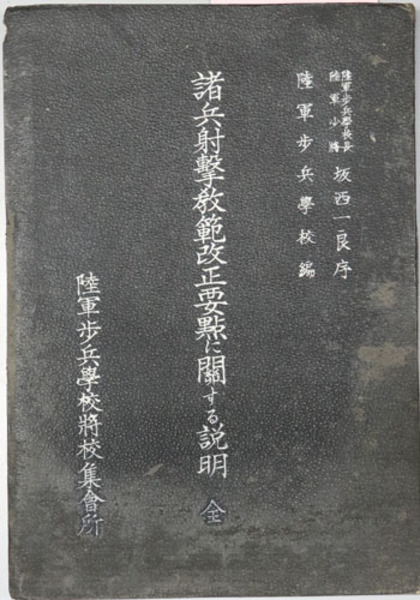 陸軍歩兵學校長
陸軍少將
坂西一良序
陸軍歩兵學校編
諸兵射擊教範改正要點に關する説明 全
陸軍歩兵學校將校集會所